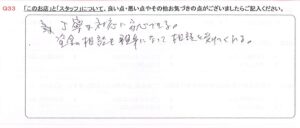 Q33 「このお店」と「スタッフ」について、良い点・悪い点やその他お気づきの点がございましたらご記入ください。
丁寧な対応に安心できる。
資金の相談も親身になって相談を受けてくれる。